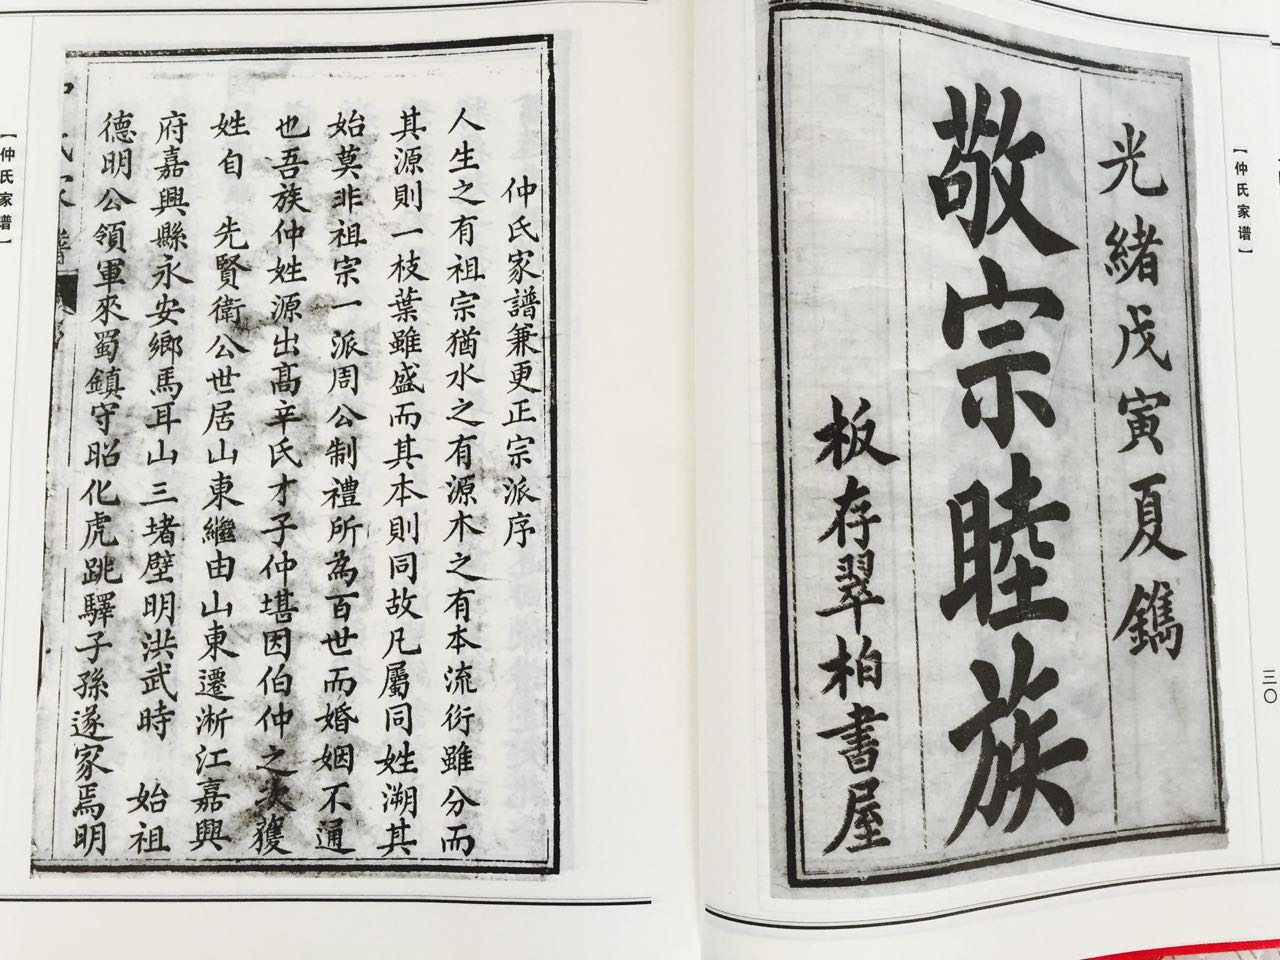 【仲氏家谱】
三〇
光緒戊寅夏鐫
敬宗睦族
板存翠柏書屋
仲氏家譜兼更正宗派序
人生之有祖宗猶水之有源木之有本流衍雖分而
其源則一枝葉雖盛而其本則同故凡屬同姓溯其
始莫非祖宗一派周公制禮所為百世而婚姻不通
也吾族仲姓源出高辛氏才子仲堪因伯仲之次獲
姓自 先賢衛公世居山東繼由山東遷淅江嘉興
府嘉興縣永安鄉馬耳山三堵壁明洪武時 始祖
德明公領軍來蜀鎮守昭化虎跳驛子孫遂家焉明
【仲氏家谱】